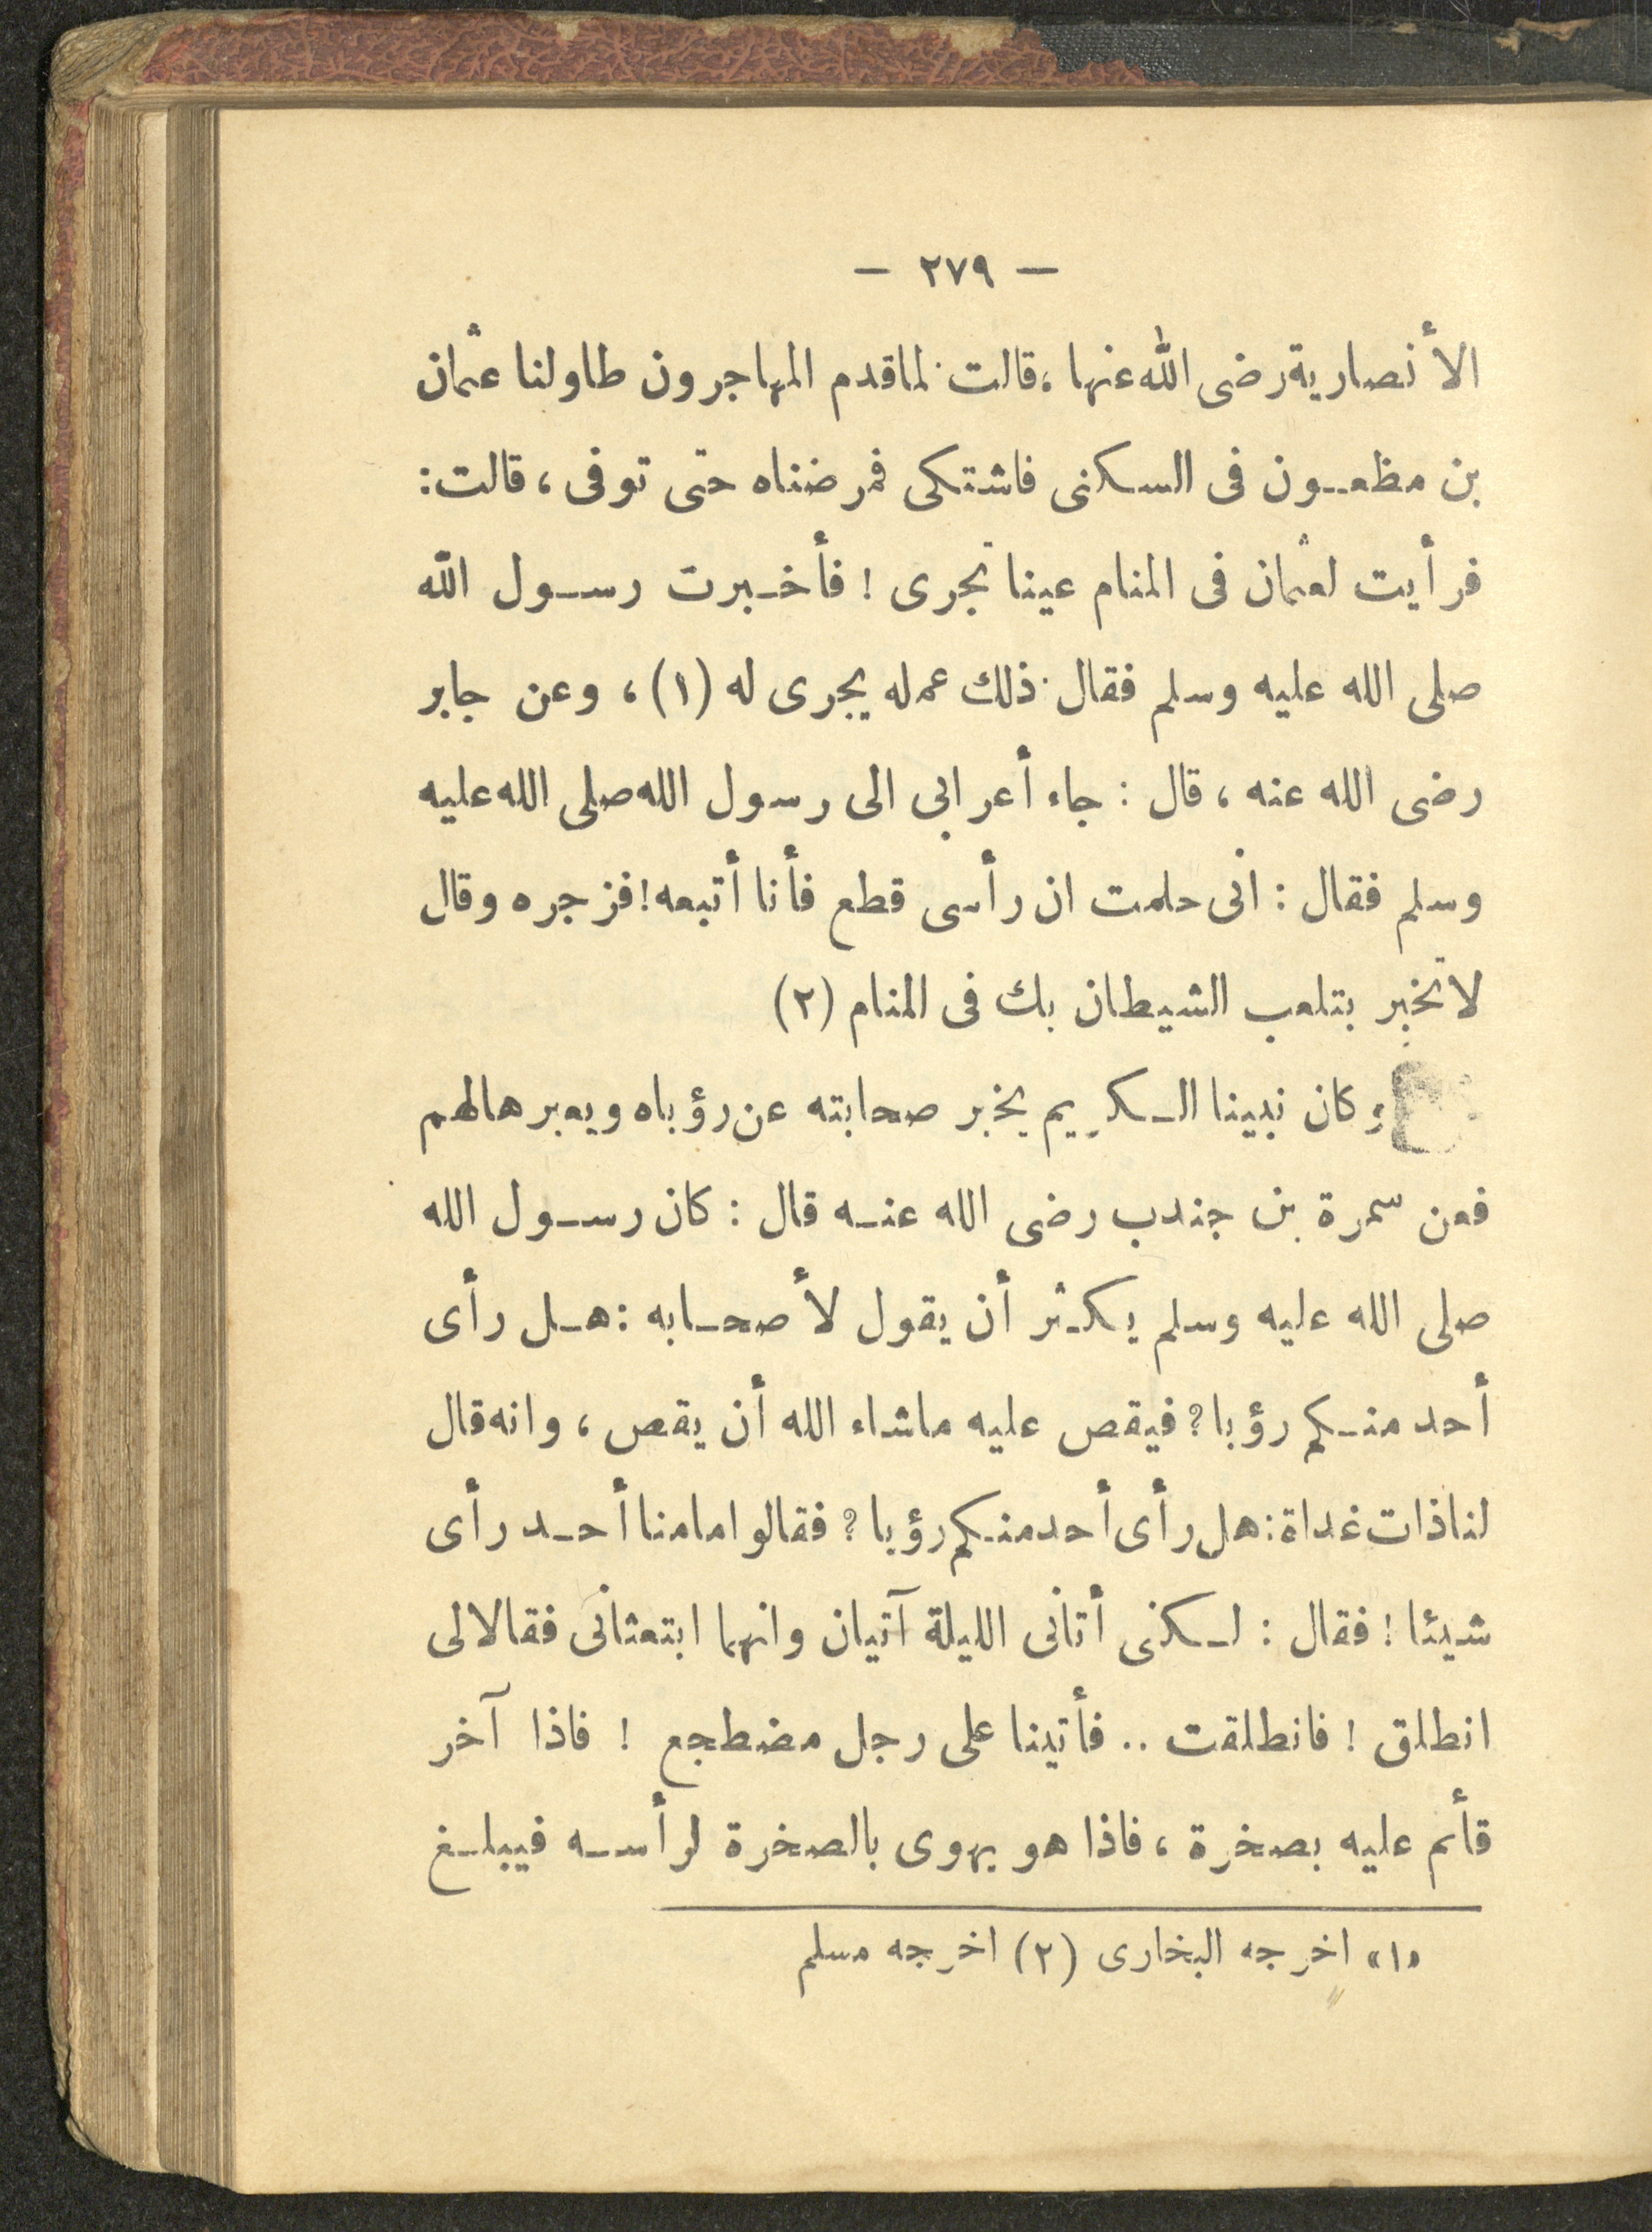 — ٢٧٩ —
الأنصارية رضى الله عنها، قالت لما قدم المهاجرون طاولنا عثمان
بن مظعون فى السكنى فاشتكى فمرضناه حتى توفى، قالت:
فرأيت لعثمان فى المنام عينا تجرى ! فأخبرت رسول الله
صلى الله عليه وسلم فقال ذلك عمله يجرى له (١)، وعن جابر
رضى الله عنه، قال : جاء أعرابى الى رسول الله صلى الله عليه
وسلم فقال : انى حلمت ان رأسى قطع فأنا أتبعه! فزجره وقال
لا تخبر بتلعب الشيطان بك فى المنام (٢)
وكان نبينا الكريم يخبر صحابته عن رؤياه ويعبرها لهم
فعن سمرة بن جندب رضى الله عنه قال : كان رسول الله
صلى الله عليه وسلم يكثر أن يقول لأصحابه : هل رأى
أحد منكم رؤيا؟ فيقص عليه ماشاء الله أن يقص، وانه قال
لنا ذات غداة : هل رأى أحد منكم رؤيا؟ فقالوا مامنا أحد رأى
شيئا ! فقال : لكنى أتانى الليلة آتيان وانهما ابتعثانى فقالا لى
انطلق ! فانطلقت .. فأتينا على رجل مضطجع ! فاذا آخر
قأئم عليه بصخرة، فاذا هو يهوى بالصخرة لرأسه فيبلغ
«١» اخرجه البخارى (٢) اخرجه مسلم